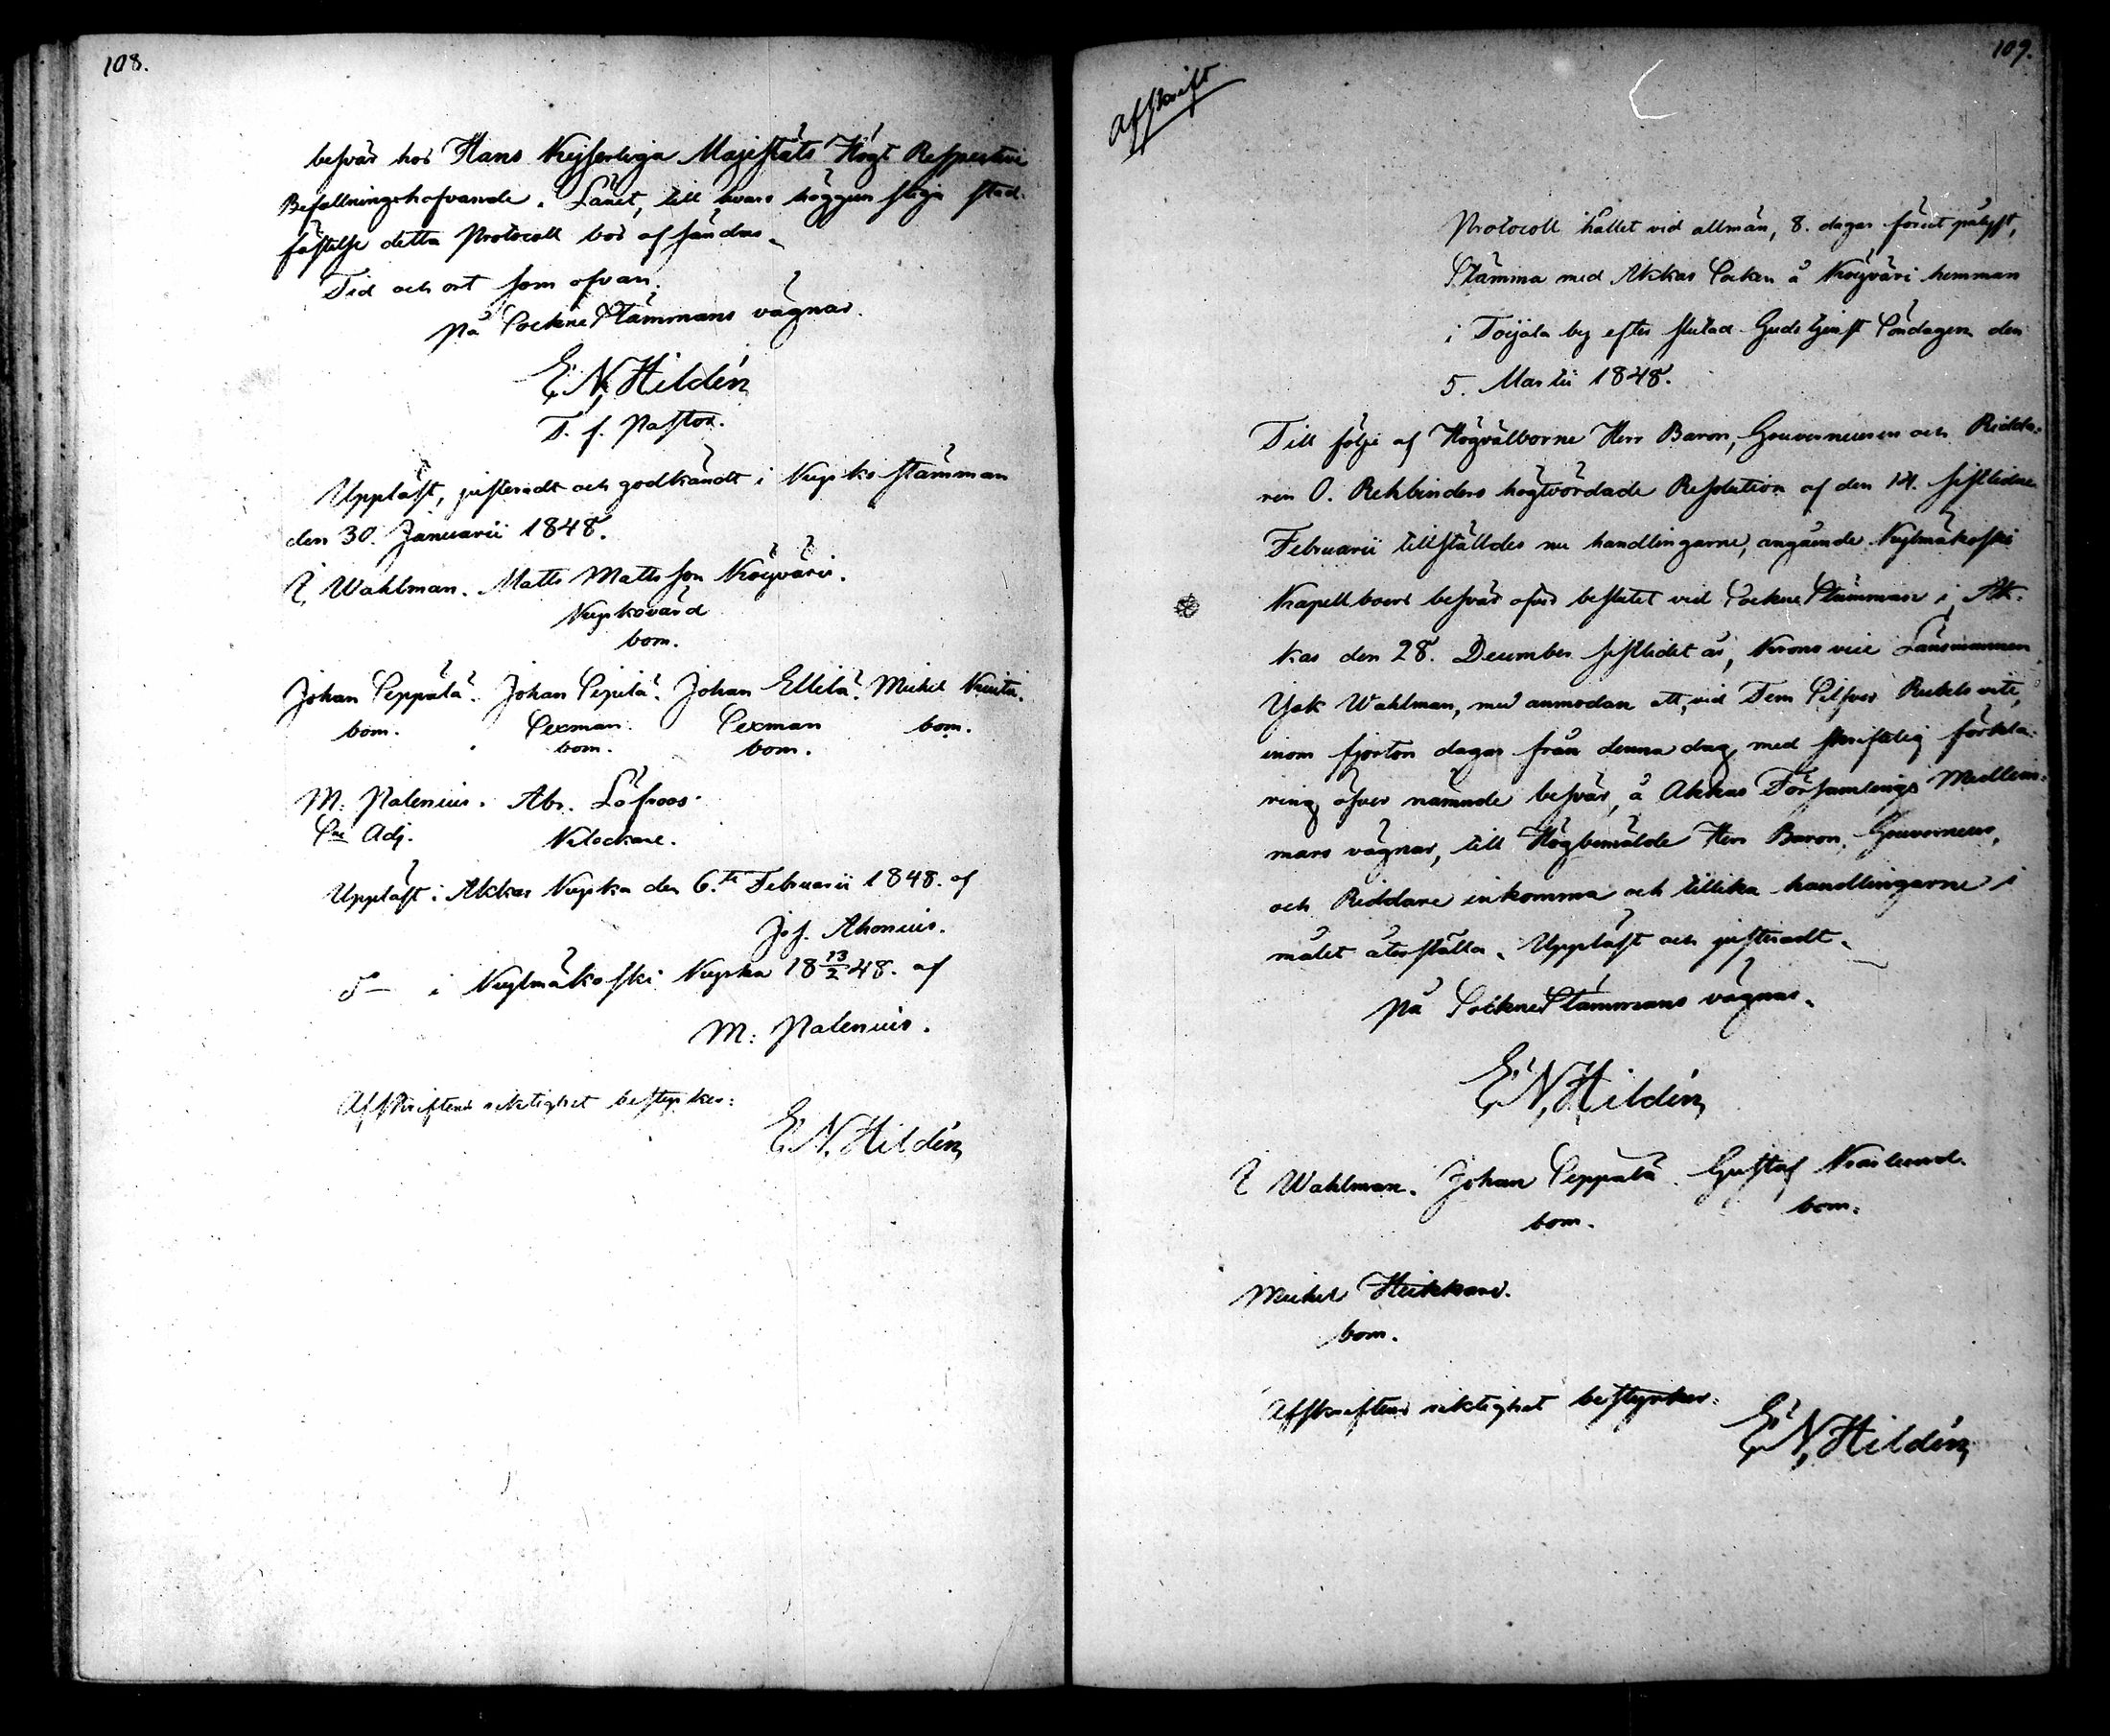 108.
besvär hos Hans Kejserliga Majestäts Högt Respective
Befallningshafvande i Länet, till hvars höggunstliga stad-
fästelse detta Protocoll bör afsändas.
Tid och ort som ofvan.
På SockneStämmans vägnar.
E. N. Hildén
T. f. Pastor.
Uppläst, justeradt och godkändt i Kyrkostämman
den 30. Januarii 1848.
Wahlman. Matts Mattsson Köyväri.
Kyrkovärd
bom.
Johan Seppälä. Johan Sipilä. Johan Ellilä. Michel
bom. Sexman. Sexman bom.
bom. bom.
M: Palenius. Abr. Löfroos.
Sne Adj. Klockare.
Uppläst i Akkas Kyrka den 6.te Februarii 1848. af
Jos. Ahonius.
d:o i Kylmäkoski Kyrka 18 13/2 48. af
M: Palenius.
Afskriftens riktighet bestyrker:
E. N. Hildén
109.
Afskrift
Protocoll hållet vid allmän, 8. dagar förut pålyst,
Stämma med Akkas Socken å Köyväri hemman
i Toijala by efter slutad Gudstjenst Söndagen den
5. Martii 1848.
Till följe af Högvälborne Herr Baron, Gouverneuren och Ridda-
ren O. Rehbinders högtvördade Resolution af den 14. sistlidne
Februarii tillställdes nu handlingarne, angående Kylmäkoski
Kapellboers besvär öfver beslutet vid SockneStämman i Ak-
kas den 28. December sistledet år, Krono vice Länsmannen
Isak Wahlman, med anmodan att, vid Fem Silfver Rubels vite,
inom fjorton dagar från denna dag, med skriftelig förkla-
ring öfver nämnde besvär, å Akkas Församlings Medlem-
mars vägnar, till Högbemälde Herr Baron, Gouverneur,
och Riddare inkomma och tillika handlingarne i
målet återställa. Uppläst och justeradt.
På SockneStämmans vägnar.
E. N. Hildén
Wahlman. Johan Seppälä. Gustaf
bom. bom.
Michel Heikkari.
bom.
Afskriftens riktighet bestyrker:
E. N. Hildén